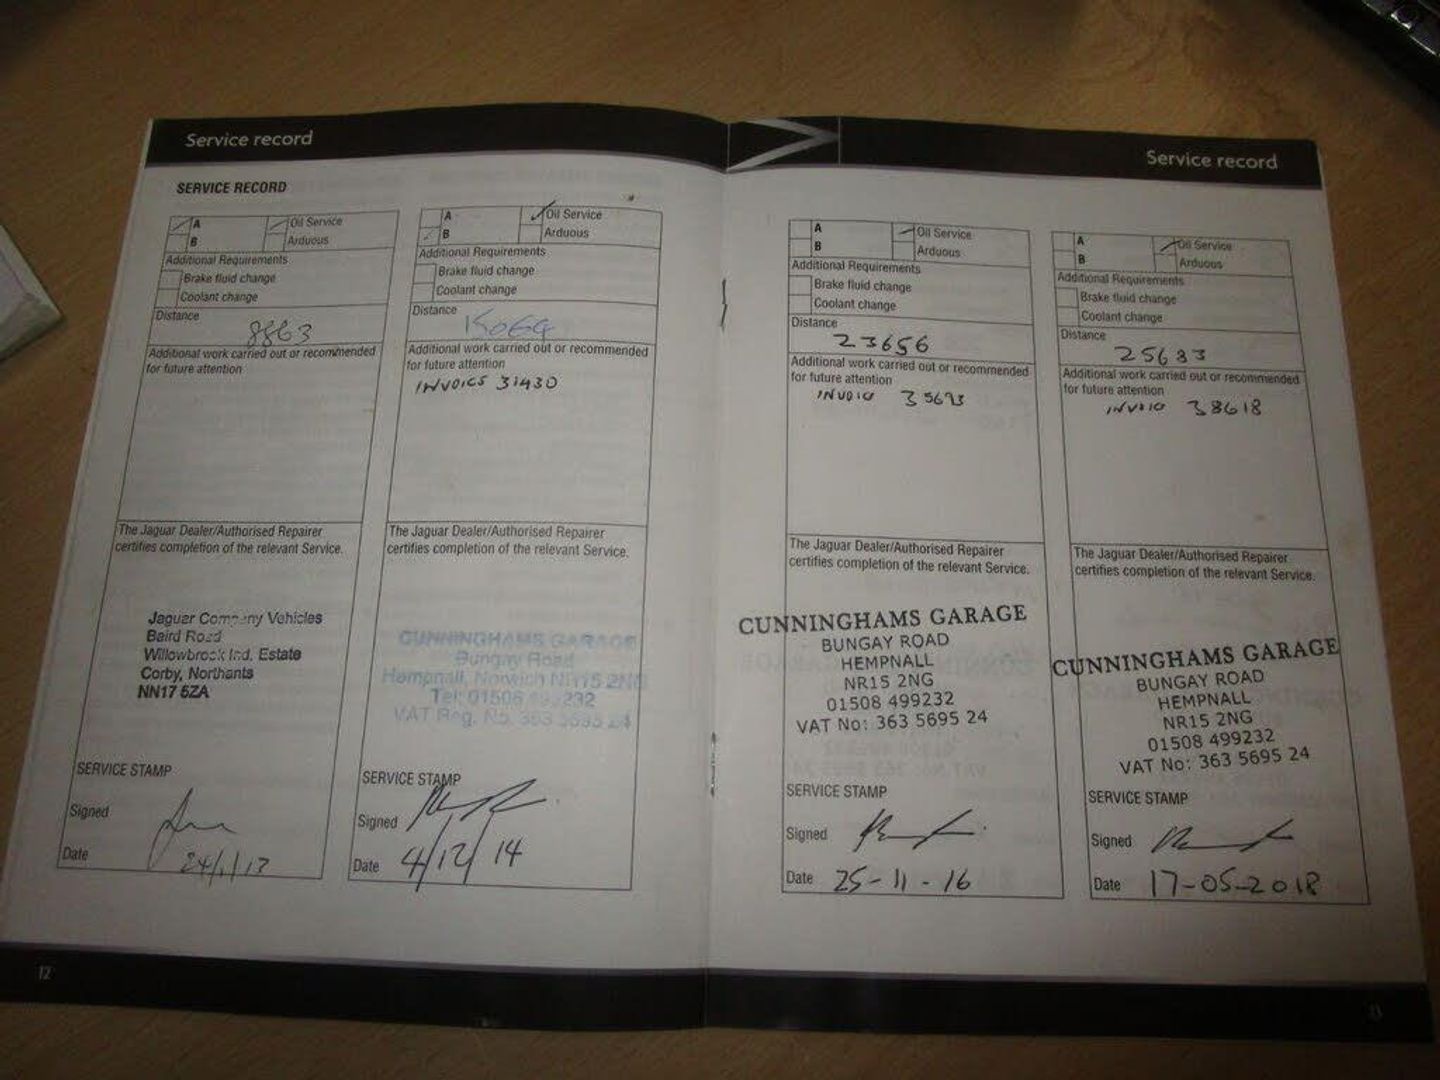 Service record
SERVICE RECORD
A
Oil Service
B
Arduous
Additional Requirements
Brake fluid change
Coolant change
Distance
8863
Additional work carried out or recommended
for future attention
The Jaguar Dealer/Authorised Repairer
certifies completion of the relevant Service.
Jaguar Company Vehicles
Baird Road
Willowbrook Ind. Estate
Corby, Northants
NN17 5ZA
SERVICE STAMP
Signed
Date
A
Oil Service
B
Arduous
Additional Requirements
Brake fluid change
Coolant change
Distance
Additional work carried out or recommended
for future attention
INVOICE 31430
The Jaguar Dealer/Authorised Repairer
certifies completion of the relevant Service.
CUNNINGHAMS GARAGE
Bungay Road
Hempnall, Norwich NR15 2NG
Tel: 01508 499232
VAT Reg. No. 363 5695 24
SERVICE STAMP
Signed
Date 4/12/14
12
Service record
A
Oil Service
B
Arduous
Additional Requirements
Brake fluid change
Coolant change
Distance
23656
Additional work carried out or recommended
for future attention
INVOIC
The Jaguar Dealer/Authorised Repairer
certifies completion of the relevant Service.
CUNNINGHAMS GARAGE
BUNGAY ROAD
HEMPNALL
NR15 2NG
01508 499232
VAT No: 363 5695 24
SERVICE STAMP
Signed
Date 25-11-16
A
Oil Service
B
Arduous
Additional Requirements
Brake fluid change
Coolant change
Distance
25683
Additional work carried out or recommended
for future attention
INVOIC 38618
The Jaguar Dealer/Authorised Repairer
certifies completion of the relevant Service.
CUNNINGHAMS GARAGE
BUNGAY ROAD
HEMPNALL
NR15 2NG
01508 499232
VAT No: 363 5695 24
SERVICE STAMP
Signed
Date 17-05-2018